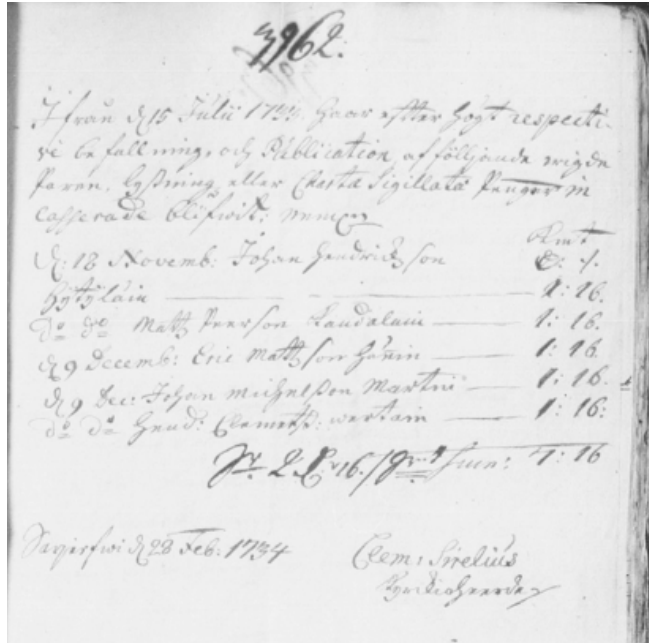 3962.
Ifrån d 15 Julii 1733. haar effter högt respecti-
ve befallning, och Publication, af följjande wigde
Paren, lysning, eller Charta Sigillata Penger in
casserade blifwit: nemn
Smt
d: 18 Novemb: Johan Hendrickson
1: 16.
do do Matz Peerson Laudalain — 1: 16.
d 9 Decemb: Eric Mattson — 1: 16
d 9 Dec: Johan Michelson Martini — 1: 16.
do do Hend: Clemetz: — 1: 16:
Sum: 7: 16
d 28 Feb: 1734
Clem: Sirelius
Kyrckioheerde